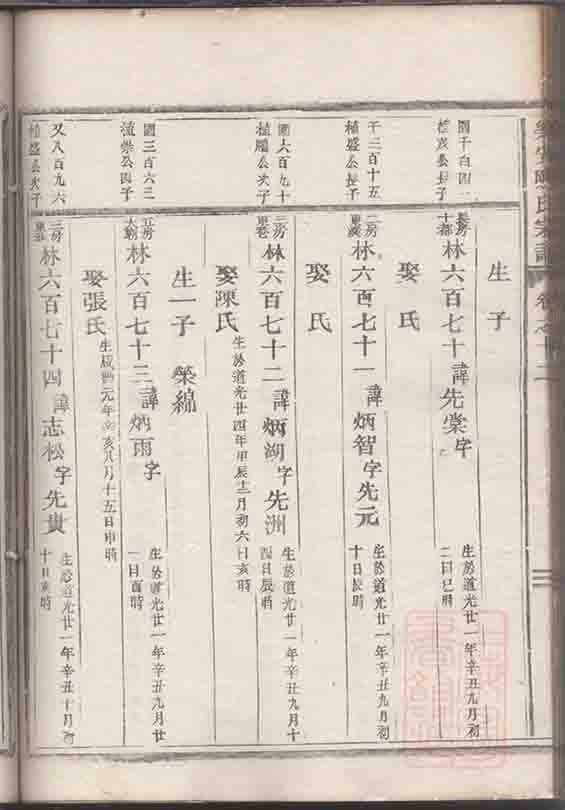 生子
園千四百四一
植茂公長子
長房
十都
林六百七十諱先棠字
生於道光廿一年辛丑九月初
二日巳時
娶氏
千二百十五
植盛公長子
二房
東溪
林六百七十一諱炳智字先元
生於道光廿一年辛丑九月初
十日辰時
娶氏
園六百九十
植公次子
三房
東巷
林六百七十二諱炳湖字先洲
生於道光廿一年辛丑九月十
四日辰時
娶陳氏
生於道光廿四年甲辰十二月初六日亥時
生一子榮綿
園三百六三
植崇公四子
五房
大朝
林六百七十三諱炳雨字
生於道光廿一年辛丑九月廿
一日酉時
娶張氏
生咸豐元年辛亥八月十五日申時
又八百九六
植盛公次子
三房
東
林六百七十四諱志松字先貴
生於道光廿一年辛丑十月初
十日亥時